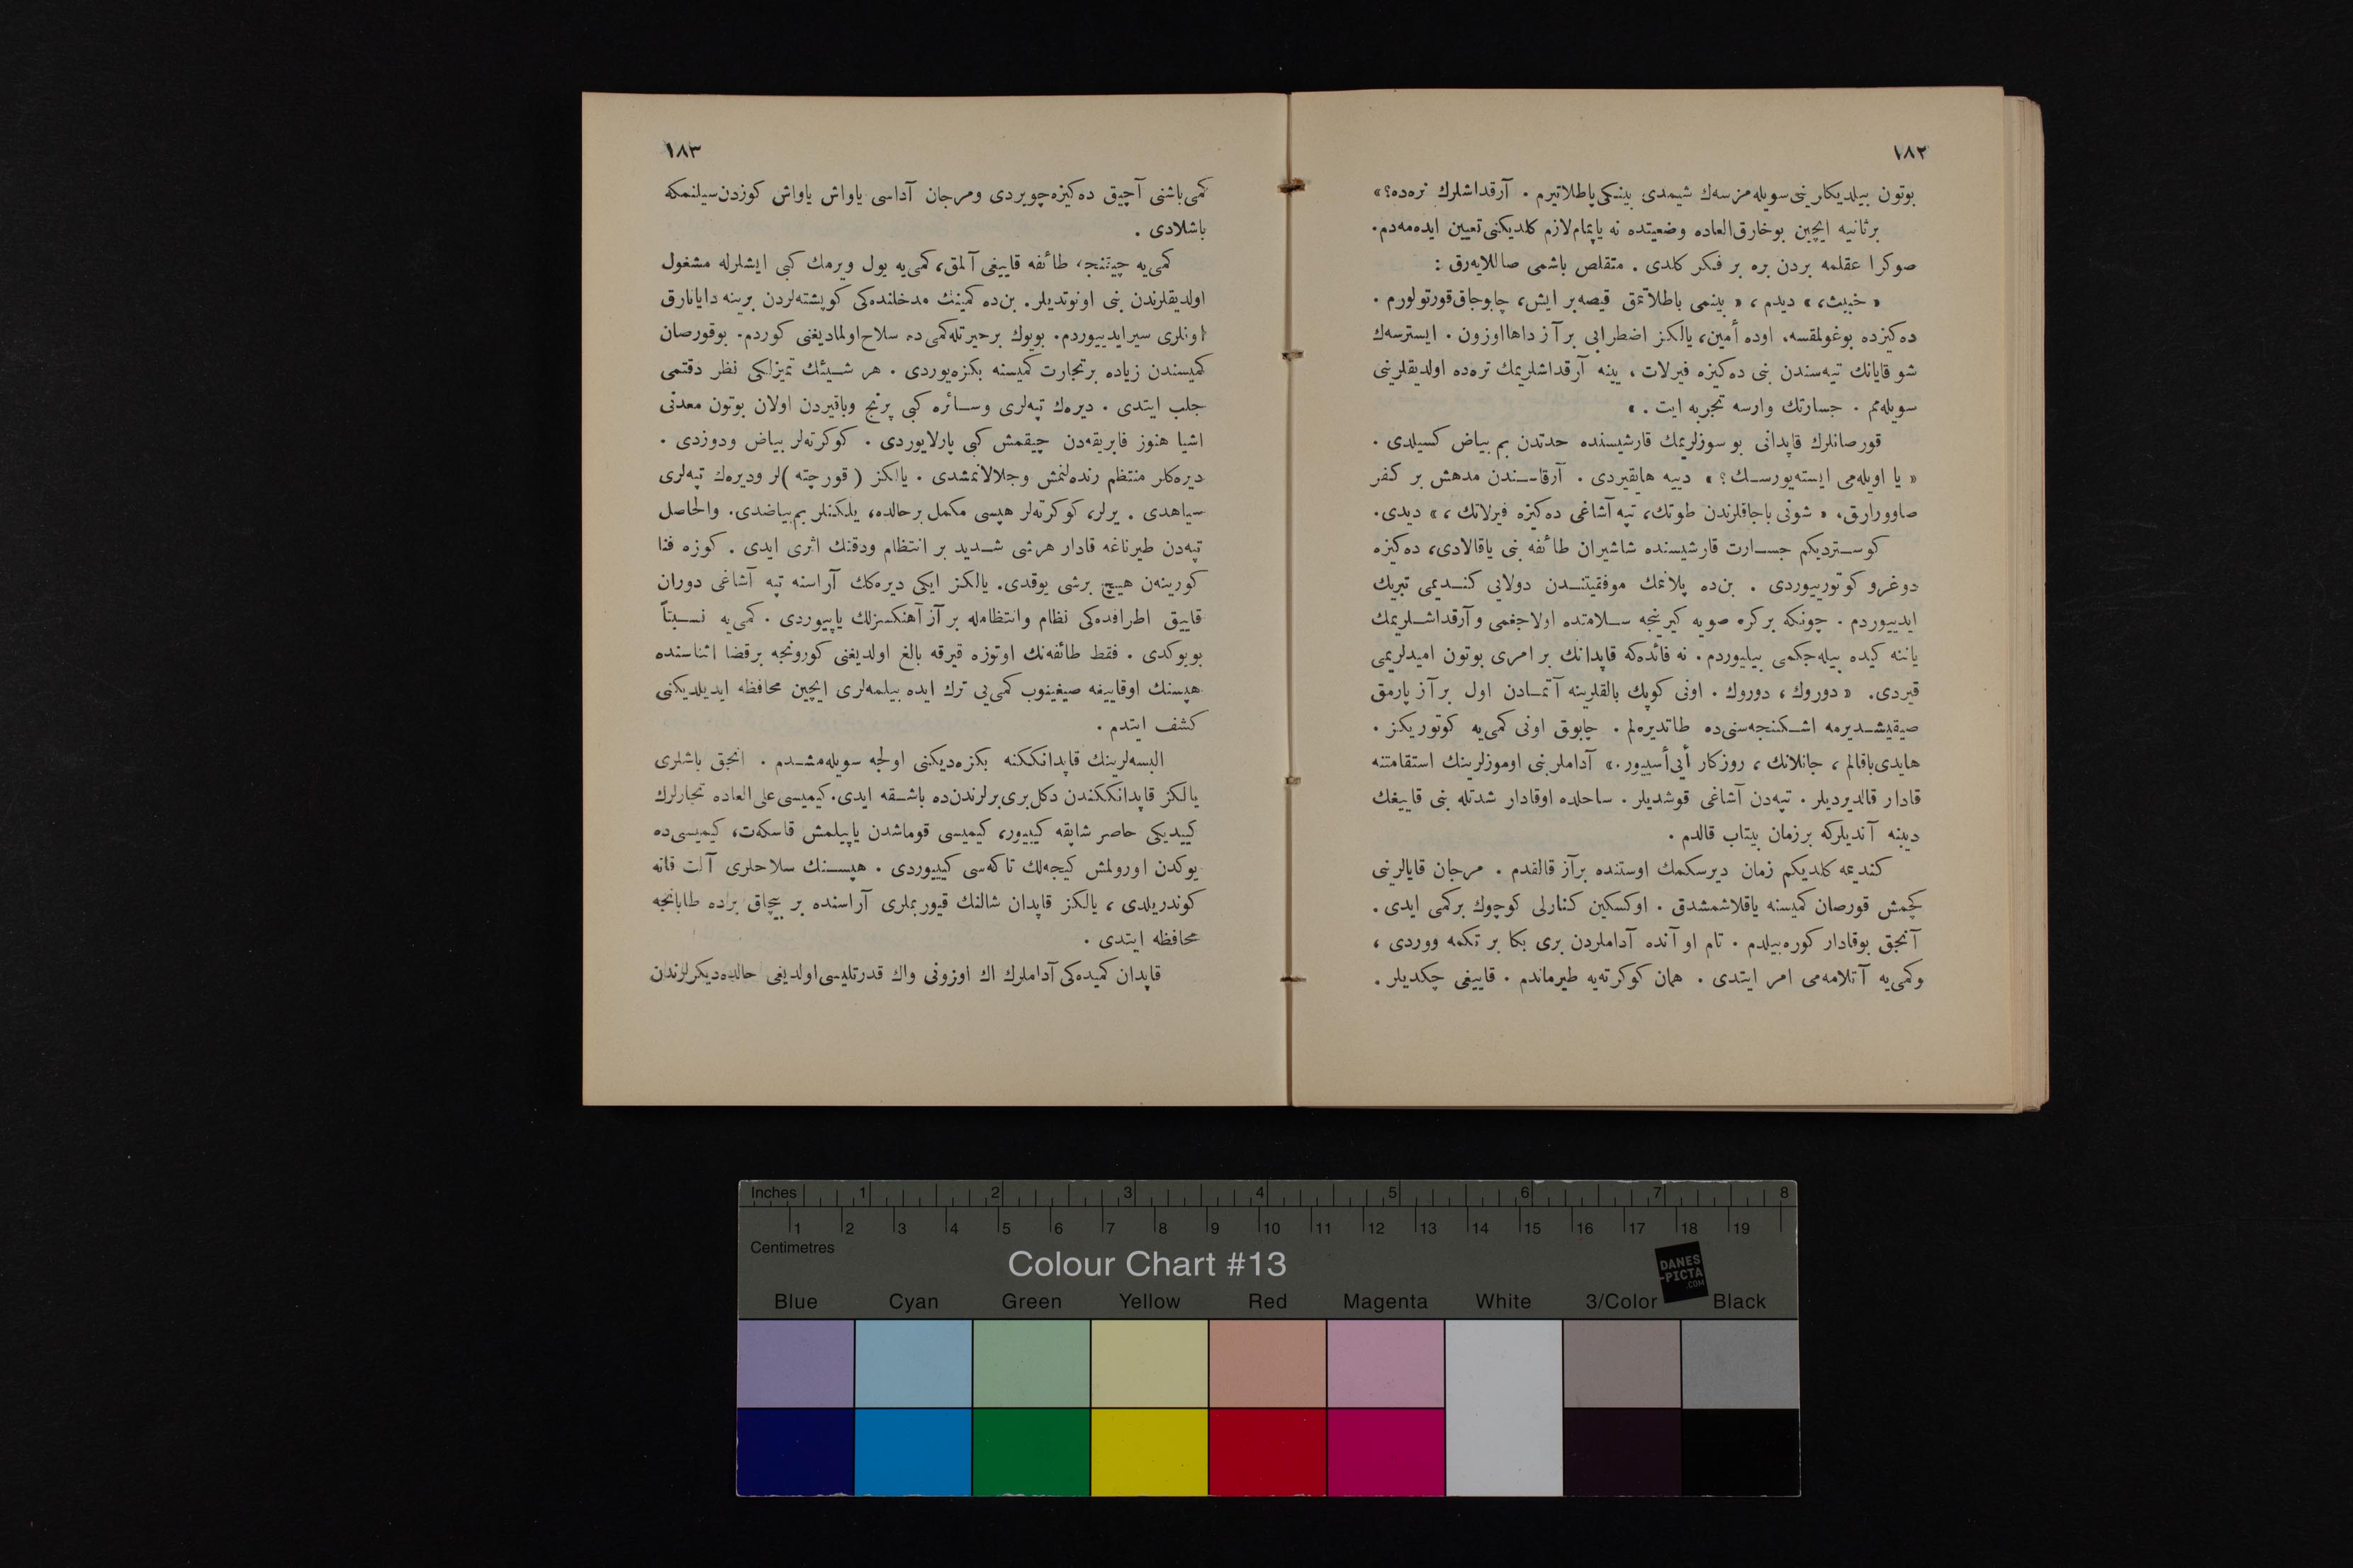 ١٨٢
بوتون بیلدیکلرینی سویله‌مزسه‌ك شیمدی بینکی پاطلاتیرم . آرقداشلرك نره‌ده؟»
برثانیه ایچین بوخارق‌العاده وضعیتده نه یاپمام‌لازم کلدیکنی تعیین ایده‌مه‌دم.
صوکرا عقلمه بردن بره بر فکر کلدی . متقلص باشمی صاللایه‌رق :
« خبیث، » دیدم ، « بینمی پاطلاتمق قیصه‌بر ایش، چابوجاق‌قورتولورم .
ده‌کیزده بوغولمقسه، اوده أمین، یالکز اضطرابی بر آز داهااوزون . ایسترسه‌ك
شو قایانك تپه‌سندن بنی ده‌کیزه فیرلات ، یینه آرقداشلریمك نره‌ده اولدیقلرینی
سویله‌مم . جسارتك وارسه تجربه ایت . »
قورصانلرك قاپدانی بو سوزلریمك قارشیسنده حدتدن بم بیاض کسیلدی .
« یا اویله‌می ایسته‌یورسـك ؟ » دییه هایقیردی . آرقاسـندن مدهش بر کفر
صاوورارق، « شونی باجاقلرندن طوتك، تپه آشاغی ده‌کیزه فیرلاتك ، » دیدی.
کوسـتردیکم جسـارت قارشیسنده شاشیران طائفه بنی یاقالادی، ده‌کیزه
دوغرو کوتوریوردی . بن‌ده پلانمك موفقیتنـدن دولایی کنـدیمی تبریك
ایدییوردم . چونکه برکره صویه کیرنجه سـلامتده اولاجغمی و آرقداشـلریمك
یاننه کیده بیله‌جکمی بیلیوردم. نه فائده‌که قاپدانك بر امری بوتون امیدلریمی
قیردی. « دوروك ، دوروك . اونی کوپك بالقلرینه آتمـادن اول بر آز پارمق
صیقیشـدیرمه اشـکنجه‌سنی‌ده طاتدیره‌لم . چابوق اونی کمی‌یه کوتوریکز .
هایدی‌باقالم ، جانلانك ، روزکار أیی‌أسییور.» آداملر بنی اوموزلرینك استقامتنه
قادار قالدیردیلر . تپه‌دن آشاغی قوشدیلر . ساحلده اوقادار شدتله بنی قاییغك
دیبنه آتدیلرکه برزمان بیتاب قالدم .
کندیمه کلدیکم زمان دیرسکمك اوستنده برآز قالقدم . مرجان قایالرینی
کچمش قورصان کمیسنه یاقلاشمشدق . اوکسکین کنارلی کوچوك برکمی ایدی .
آنجق بوقادار کوره‌بیلدم . تام او آنده آداملردن بری بکا بر تکمه ووردی ،
وکمی‌یه آتلامه‌می امر ایتدی . همان کوکرته‌یه طیرماندم . قاییغی چکدیلر .
١٨٣
کمی‌باشنی آچیق ده‌کیزه‌چویردی ومرجان آداسی یاواش یاواش کوزدن‌سیلنمکه
باشلادی .
کمی‌یه چیقنجه، طائفه قاییغی آلمق، کمی‌یه یول ویرمك کبی ایشلرله مشغول
اولدیقلرندن بنی اونوتدیلر. بن‌ده کمینك مدخلنده‌کی کوپشته‌لردن برینه دایانارق
اونلری سیرایدییوردم. بویوك برحیرتله‌کمی‌ده سلاح‌اولمادیغنی کوردم. بوقورصان
کمیسندن زیاده برتجارت کمیسنه بکزه‌یوردی . هر شـیئك تمیزلکی نظر دقتمی
جلب ایتدی . دیره‌ك تپه‌لری وسـائره کبی پرنج وباقیردن اولان بوتون معدنی
اشیا هنوز فابریقه‌دن چیقمش کبی پارلایوردی . کوکرته‌لر بیاض ودوزدی .
دیره‌کلر منتظم رنده‌لنمش وجلالانمشدی . یالکز ( قورچته )لر ودیره‌ك تپه‌لری
سیاهدی . یرلر، کوکرته‌لر هپسی مکمل برحالده، یلکنلر بم‌بیاضدی. والحاصل
تپه‌دن طیرناغه قادار هرشی شـدید بر انتظام ودقتك اثری ایدی . کوزه فنا
کورینه‌ن هیچ برشی یوقدی. یالکز ایکی دیره‌کك آراسنه تپه آشاغی دوران
قاییق اطرافده‌کی نظام وانتظامله بر آز آهنکسزلك یاپیوردی . کمی‌یه نسـبتاً
بویوکدی . فقط طائفه‌نك اوتوزه قیرقه بالغ اولدیغنی کورونجه برقضا اثناسنده
هپسنك اوقاییغه صیغینوب کمی‌یی ترك ایده بیلمه‌لری ایچین محافظه ایدیلدیکنی
کشف ایتدم .
البسه‌لرینك قاپدانککنه بکزه‌دیکنی اولجه سویله‌مشـدم . انجق باشلری
یالکز قاپدانککندن دکل‌بری‌برلرندن‌ده باشـقه ایدی. کیمیسی‌علی‌العاده تجارلرك
کییدیکی حاصر شاپقه کییور، کیمیسی قوماشدن یاپیلمش قاسکه‌ت، کیمیسی‌ده
یوکدن اورولمش کیجه‌لك تاکه‌سی کییوردی . هپسـنك سلاحلری آلت قاته
کوندریلدی ، یالکز قاپدان شالنك قیوریملری آراسنده بر بیچاق برده طابانجه
محافظه ایتدی .
قاپدان کمیده‌کی آداملرك اك اوزونی واك قدرتلیسی‌اولدیغی حالده‌دیکرلرندن
Inches 1 2 3 4 5 6 7 8
1 2 3 4 5 6 7 8 9 10 11 12 13 14 15 16 17 18 19
Centimetres
Colour Chart #13
DANES
-PICTA
.COM
Blue Cyan Green Yellow Red Magenta White 3/Color Black